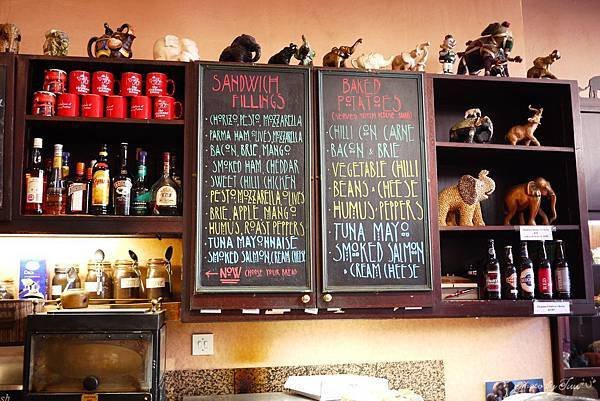 SANDWICH
FILLINGS
· CHORIZO, PESTO, MOZZARELLA
· PARMA HAM, OLIVES, MOZZARELLA
· BACON, BRIE, MANGO
· SMOKED HAM, CHEDDAR
· SWEET CHILLI CHICKEN
· PESTO, MOZZARELLA, OLIVES
· BRIE, APPLE, MANGO
· HUMUS, ROAST PEPPERS
· TUNA MAYONNAISE
· SMOKED SALMON, CREAM CHEESE
← NOW CHOOSE YOUR BREAD
BAKED
POTATOES
· CHILLI CON CARNE
· BACON & BRIE
· VEGETABLE CHILLI
· BEANS & CHEESE
· HUMUS + PEPPERS
· TUNA
MAYO
· SMOKED SALMON
& CREAM CHEESE